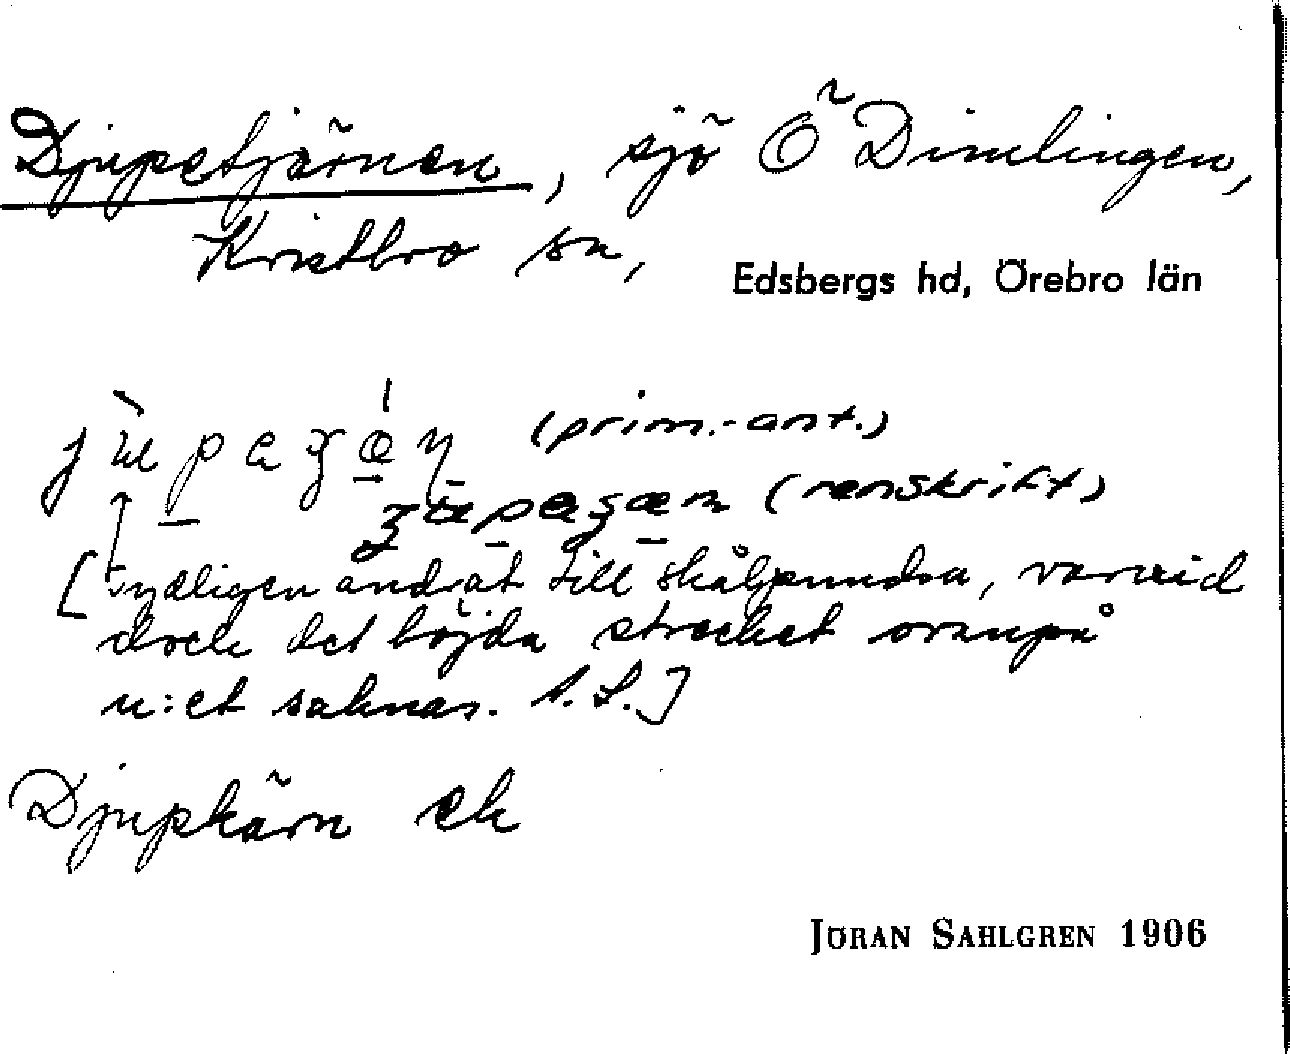 Djupetjärnen, sjö Ö Dimlingen,
Kvistbro sn,
Edsbergs hd, Örebro län
(prim.-ant.)
(renskrift)
[tydligen ändrat till skålpundsu, varvid
dock det böjda strecket ovanpå
u:et saknas. A.L.]
Djupkärn ek
JÖRAN SAHLGREN 1906